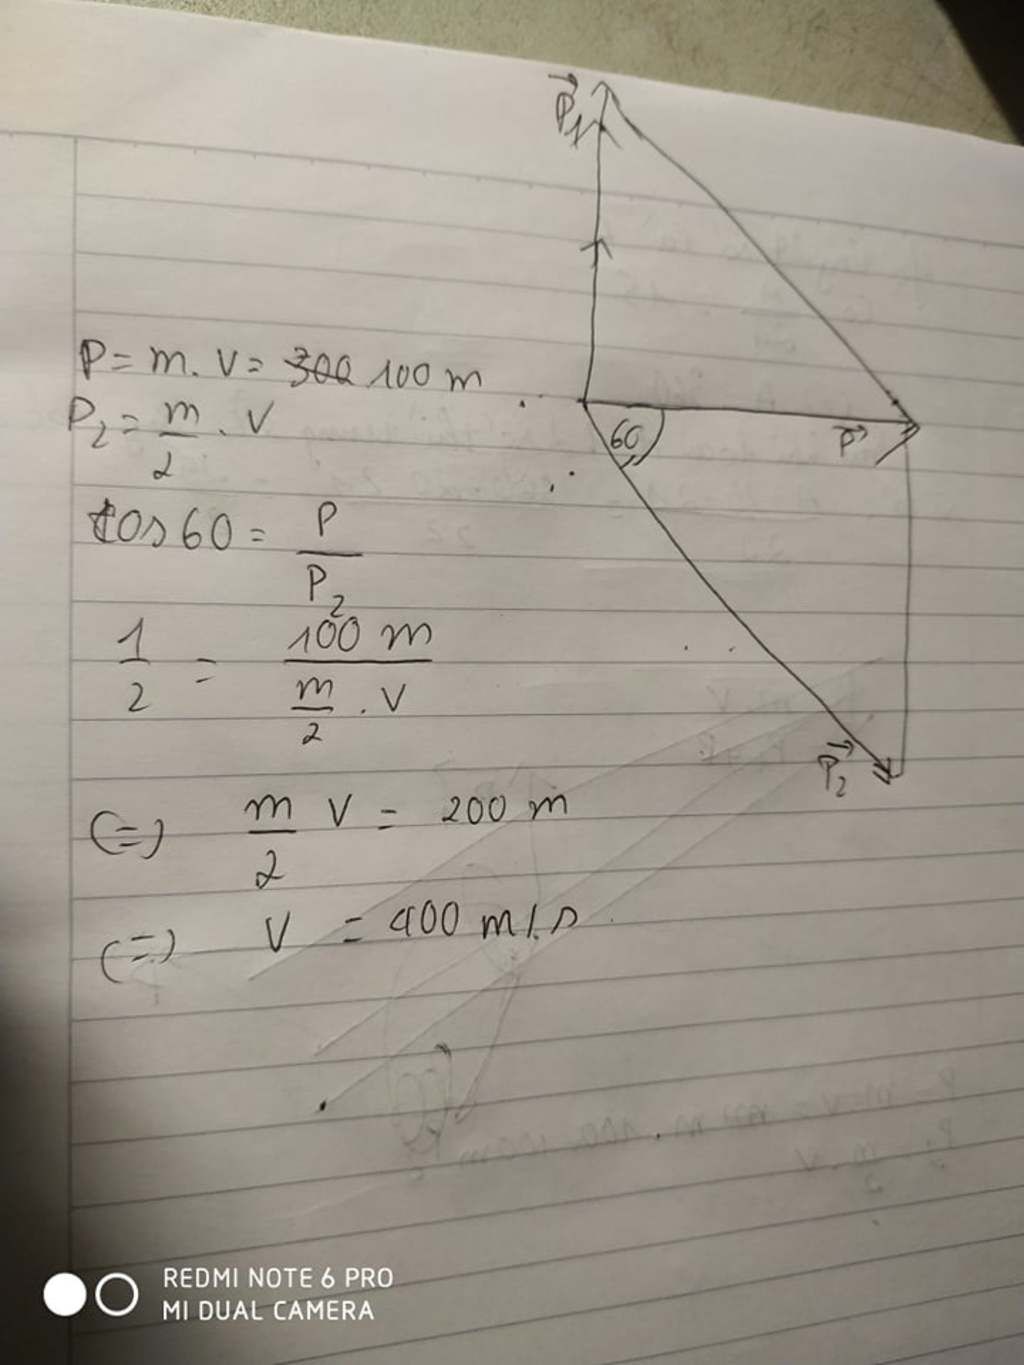 P⃗₁
P = m. V = 300 100 m
P₂ = m/2 . V
60
P⃗
cos 60 = P/P₂
1/2 = 100 m / (m/2 . V)
P⃗₂
(=) m/2 V = 200 m
(=) V = 400 m/s
REDMI NOTE 6 PRO
MI DUAL CAMERA